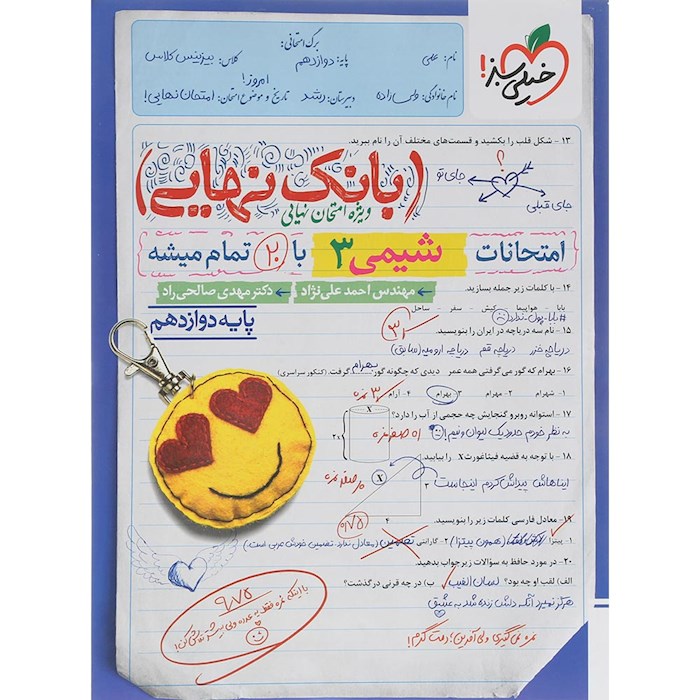 خیلی سبز!
برگ امتحانی:
نام: علی
پایه: دوازدهم
کلاس: بیزینس کلاس
نام خانوادگی: ولی‌زاده
دبیرستان: رشد
تاریخ و موضوع امتحان: امروز! امتحان نهایی!
۱۳ - شکل قلب را بکشید و قسمت‌های مختلف آن را نام ببرید.
؟
جای تو
جای قبلی
(بانک نهایی)
ویژه امتحان نهایی
امتحانات شیمی ۳ با ۲۰ تمام میشه
۱۴ - با کلمات زیر جمله بسازید.
مهندس احمد علی‌نژاد
دکتر مهدی صالحی‌راد
بابا - هواپیما - کیش - سفر - ساحل
#بابا-پول-ندارد
پایه دوازدهم
۱۵ - نام سه دریاچه در ایران را بنویسید.
۳
دریاچه خزر دریاچه قم دریاچه ارومیه (سابق)
۱۶ - بهرام که گور می‌گرفتی همه عمر دیدی که چگونه گور بهرام گرفت. (کنکور سراسری)
۱ - شهرام ۲ - مهرام ۳ - بهرام ۴ - آرام
۳ نمره
۱۷ - استوانه روبرو گنجایش چه حجمی از آب را دارد؟
X
2x
به نظر خودم حدود یک لیوان و نیم!
اه صفر نمره
۱۸ - با توجه به قضیه فیثاغورث X را بیابید.
ایناهاش پیداش کردم اینجاست
X
۳
۴
۰/۷۵
۱۹ - معادل فارسی کلمات زیر را بنویسید.
۱ - پیتزا (همون پیتزا) ۲ - گارانتی تضمین (معادل ندارد، تضمین خودش عربی است.)
۲۰ - در مورد حافظ به سؤالات زیر جواب بدهید.
الف) لقب او چه بود؟ لسان الغیب ب) در چه قرنی درگذشت؟
هرگز نمیرد آنکه دلش زنده شد به عشق
۹/۷۵
نمره نمی‌گیری ولی آفرین! دمت گرم!